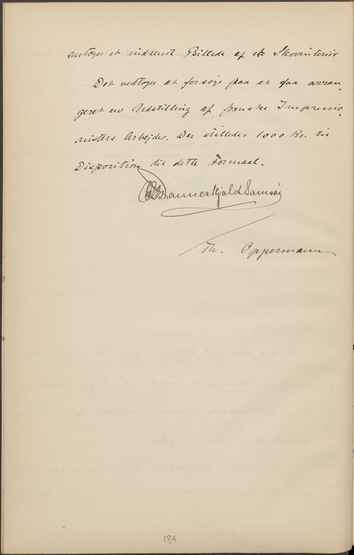 antoges et indsendt Billede af et Skovinteriør
Det vedtoges at forsøge paa at faa arran-
geret en Udstilling af franske Impressio-
nisters Arbejder. Der stilledes 1000 Kr. til
Disposition til dette Formaal.
Danneskjold Samsøe
Th. Oppermann
124